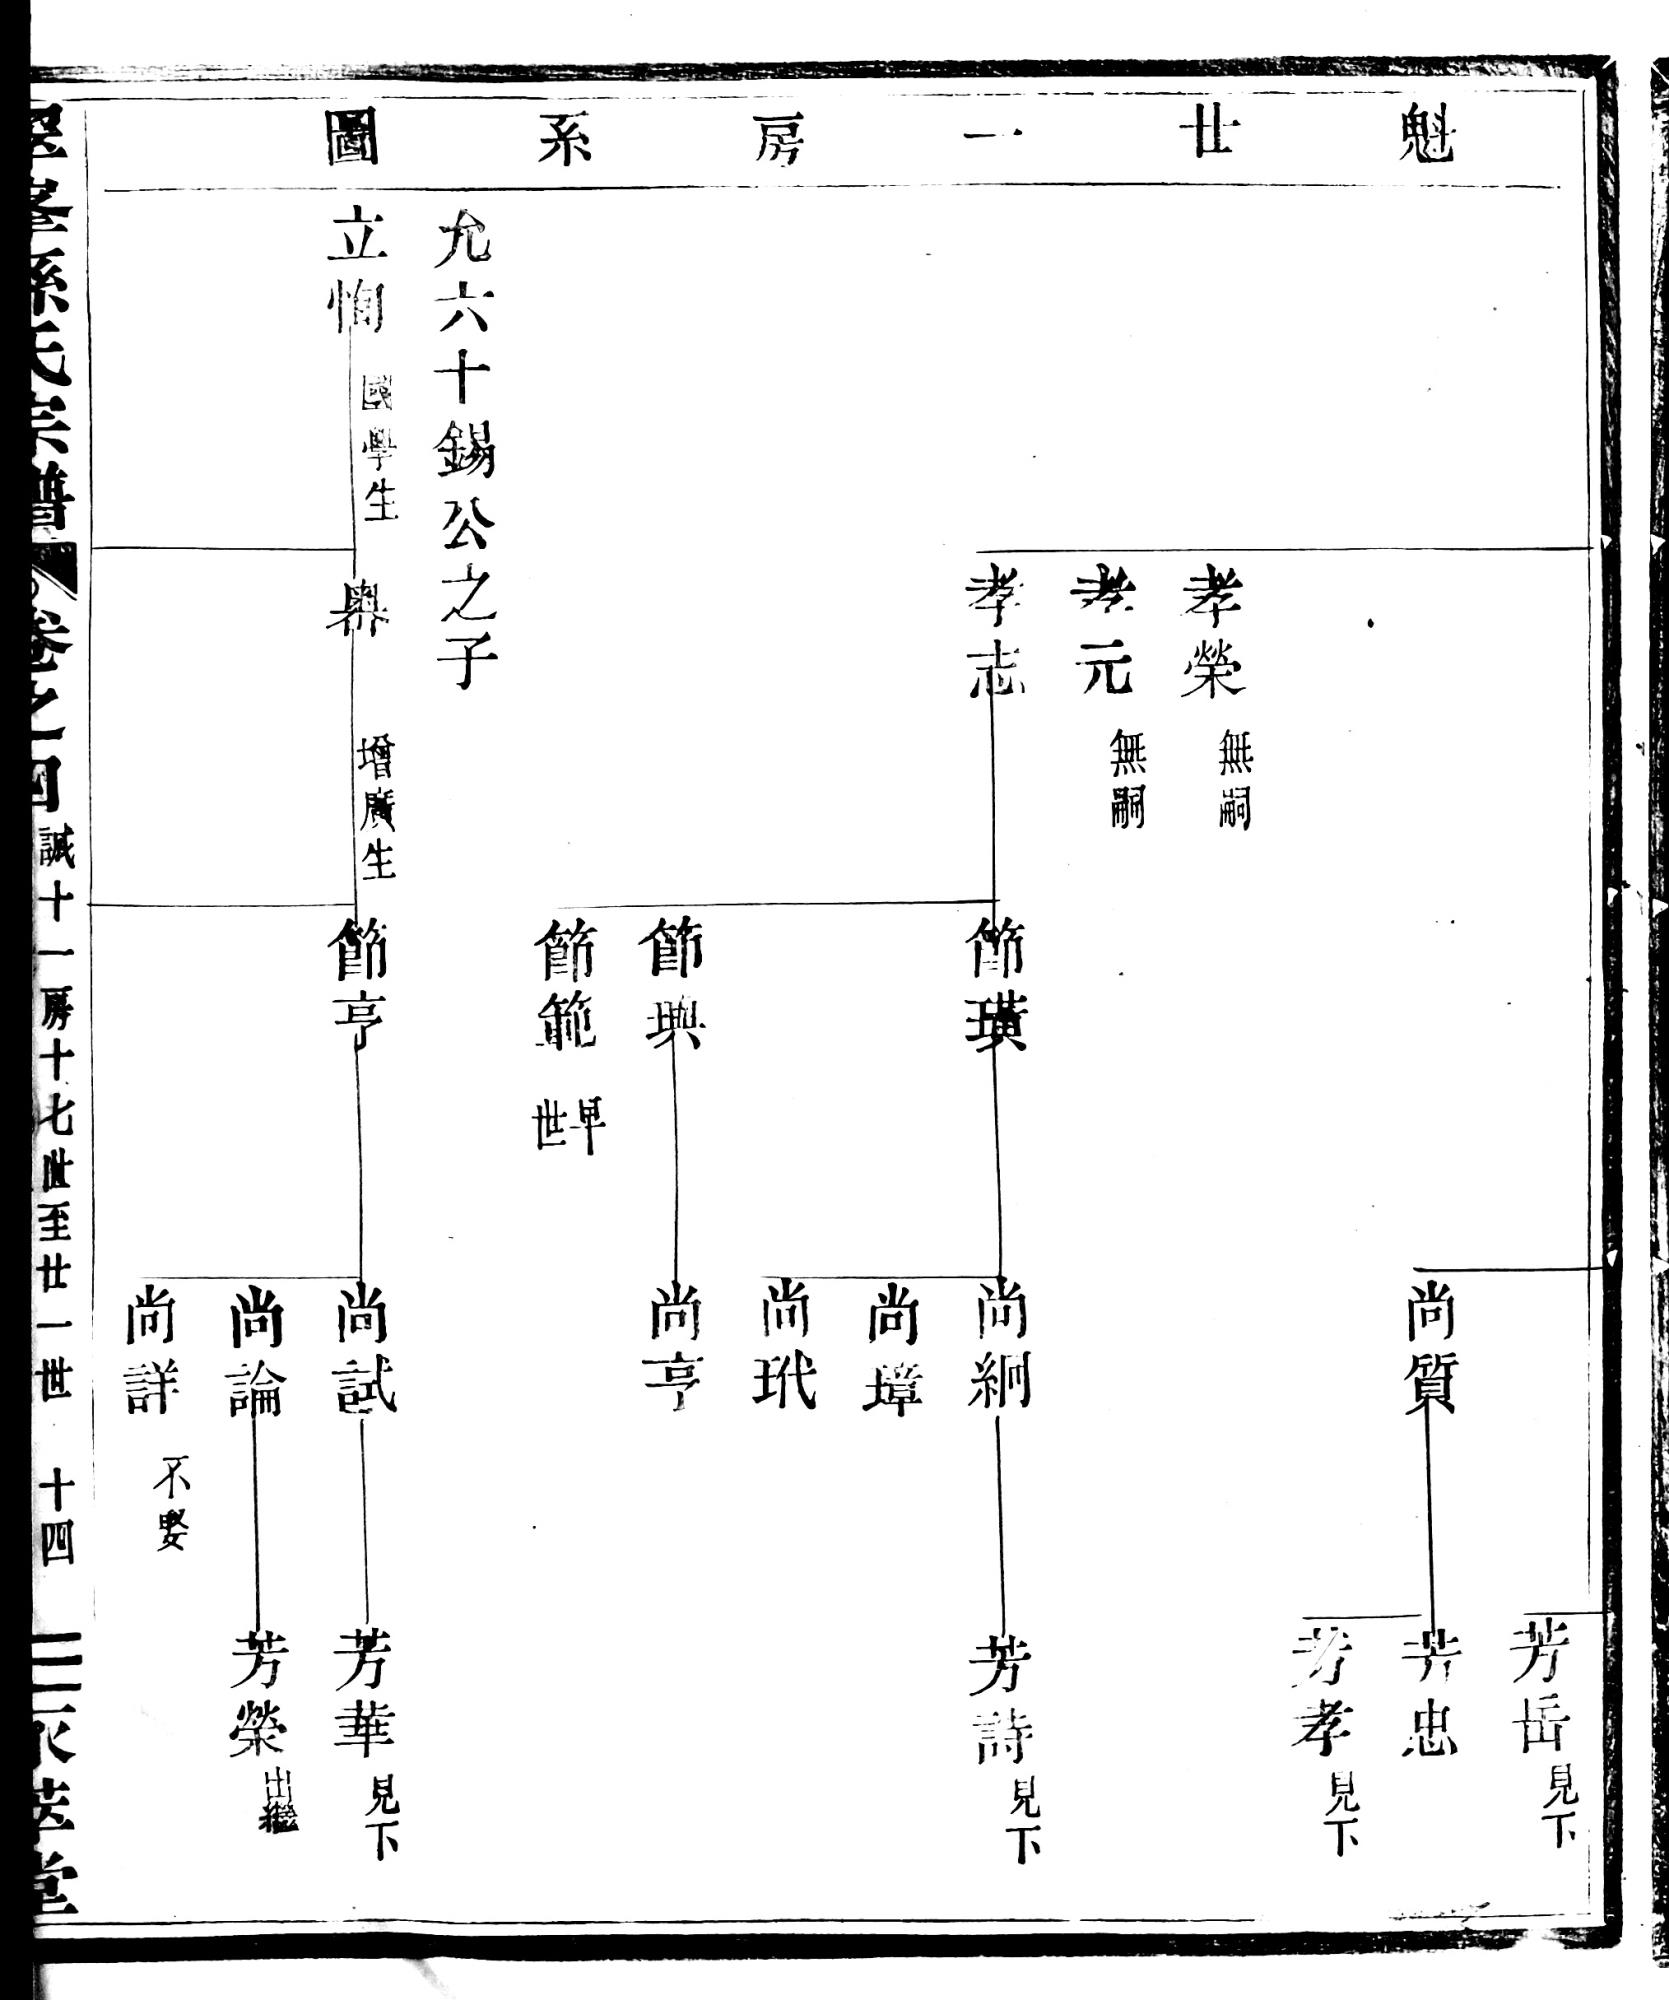 魁廿一房系圖
芳岳 見下
尚質
芳忠
芳孝 見下
孝榮 無嗣
孝元 無嗣
孝志
節璜
尚絅
芳詩 見下
尚璋
尚玳
節典
尚亨
節範 早世
允六十錫公之子
立恂 國學生
增廣生
節亨
尚試
芳華 見下
尚論
芳榮 出繼
尚詳 不娶
孫氏宗譜 卷之四 誠十一房十七世至廿一世 十四 萃堂